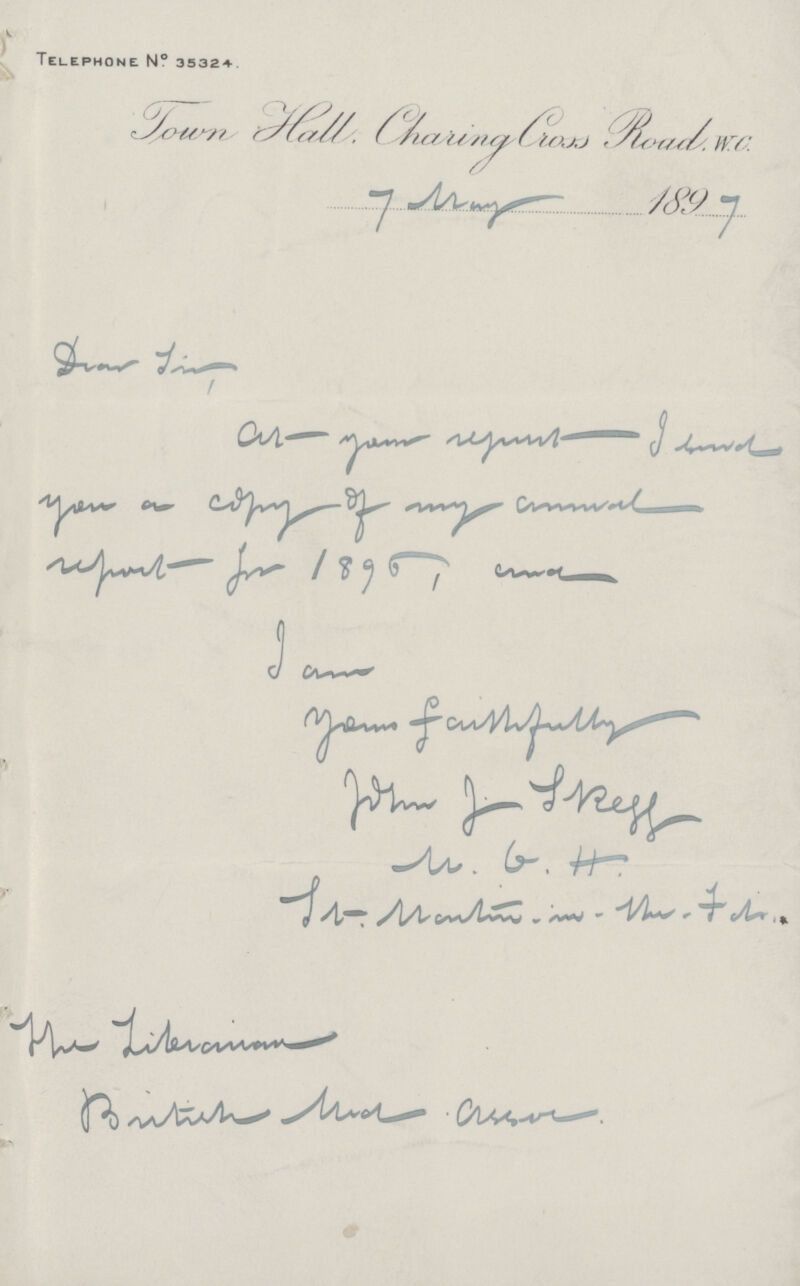 TELEPHONE No. 35324.
Town Hall. Charing Cross Road. W.C.
7 May 1897
Dear Sir,
At your request I send
you a copy of my annual
report for 1896, and
I am
Yours faithfully
John J. Skegg
M. O. H.
St. Martin-in-the-Fds.
The Librarian
British Med Assoc.